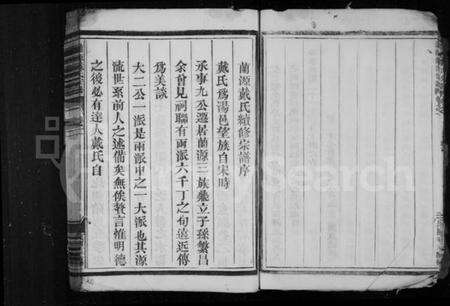 蘭源戴氏續修宗譜序
戴氏爲湯邑望族自宋時
承事九公遷居蘭源三族鼎立子孫繁昌
余曾見祠聯有兩派六千丁之句遠近傳
爲美談
大二公一派是兩派中之一大派也其源
流世系前人之述備矣無俟贅言惟明德
之後必有達人戴氏自